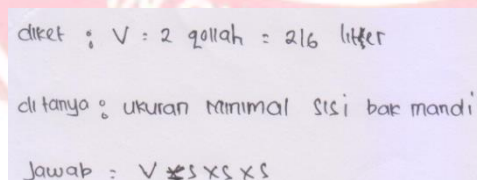 diket : V = 2 qollah = 216 litter
ditanya : ukuran minimal sisi bak mandi
Jawab = V = s x s x s